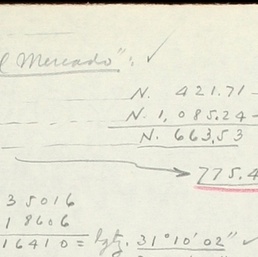 l Mercado": ✓
N. 421.71-
N. 1,085.24-
N. 663,53
775.4
35016
18606
16410 = lgty. 31°10'02" ✓